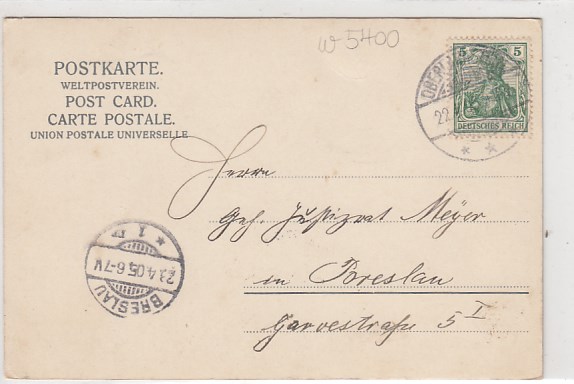 w 5400
POSTKARTE.
WELTPOSTVEREIN.
POST CARD.
CARTE POSTALE.
UNION POSTALE UNIVERSELLE
5 5
DEUTSCHES REICH
22.
Herrn
Geh. Justizrat Meyer
in Breslau
Garvestraße 5 I
BRESLAU
23.4.05.6-7V
* 1